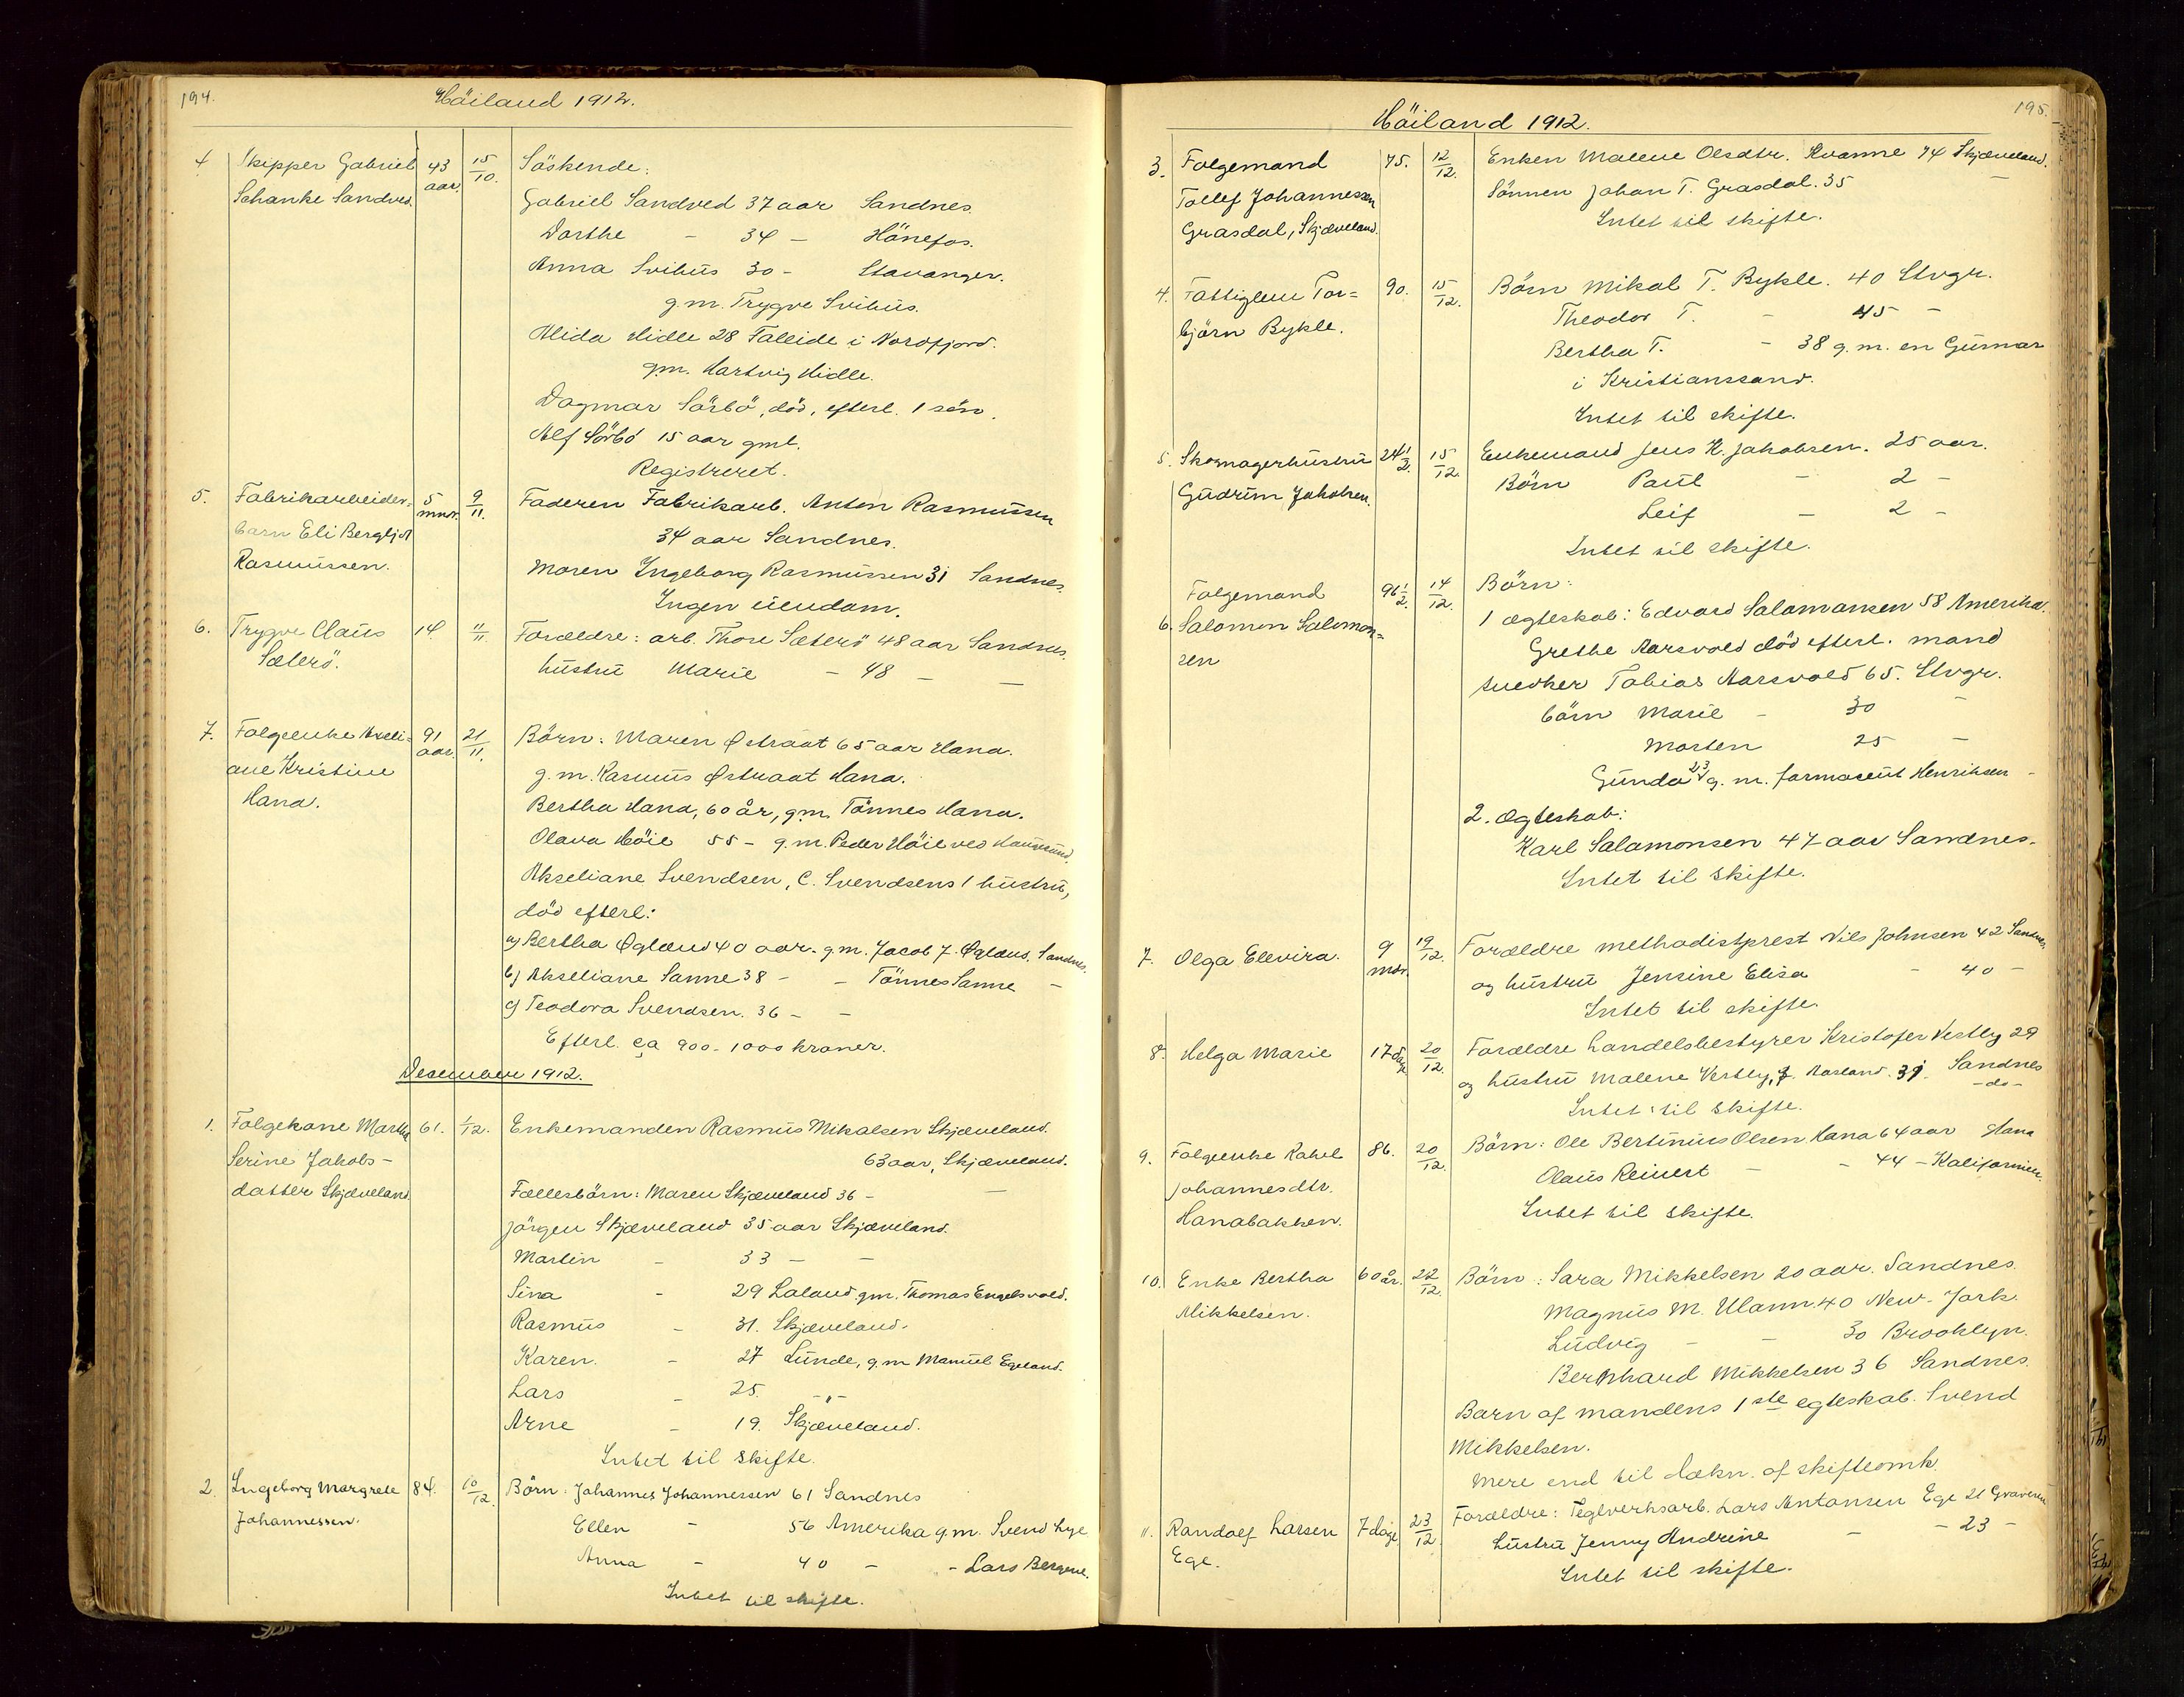 194.
Höiland 1912.
4 Skipper Gabriel 43 aar. 15/10. Söskende:
Schanke Sandved. Gabriel Sandved 37 aar Sandnes.
Dorthe - 34 - Hönefos.
Anna Svihus 30 - Stavanger.
g.m. Trygve Svihus.
Alida Hidle 28 Falleide i Nordfjord.
gm. Hartvig Hidle.
Dagmar Sörbö, död, efterl. 1 sön.
Alf Sörbö 15 aar gml.
Registreret.
5. Fabrikarbeider- 5 mnr. 9/11. Faderen Fabrikarb. Anton Rasmussen
barn Eli Bergljot 34 aar Sandnes.
Rasmussen. Moren Ingeborg Rasmussen 31 Sandnes.
Ingen eiendom.
6. Trygve Claus 14 11/11. Forældre: arb. Thore Sæterö 48 aar Sandnes.
Sæterö. hustru Marie - 48 - -
7. Folgeenke Axeli- 91 aar. 21/11. Börn: Maren Østraat 65 aar Hana.
ane Kristine g.m. Rasmus Østraat Hana.
Hana. Bertha Hana, 60 år, g.m. Tönnes Hana.
Olava Höie 55 - g.m. Peder Höie ved Haugesund.
Akseliane Svendsen, C. Svendsens 1 hustru,
död efterl:
a) Bertha Øglænd 40 aar. g.m. Jacob J. Øglænd. Sandnes.
b) Akseliane Sanne 38 - - Tönnes Sanne -
c) Teodora Svendsen. 36 - -
Efterl. ca 900 - 1000 kroner.
Desember 1912.
1. Folgekone Martha 61. 1/12. Enkemanden Rasmus Mikalsen Skjæveland.
Serine Jakobs- 63 aar, Skjæveland.
datter Skjæveland. Fællesbörn: Maren Skjæveland 36 - -
Jörgen Skjæveland 35 aar Skjæveland.
Martin - 33 - -
Sina - 29 Laland. gm. Thomas Engelsvold.
Rasmus - 31. Skjæveland.
Karen. - 27 Lunde, g.m Manuel Egeland.
Lars - 25. -"-
Arne - 19. Skjæveland.
Intet til skifte.
2. Ingeborg Margrete 84. 10/12. Börn: Johannes Johannessen 61 Sandnes
Johannessen. Ellen - 56 Amerika g.m. Svend Lye
Anna - 40 - - Lars Bergene.
Intet til skifte.
195.
Höiland 1912.
3. Folgemand 75. 12/12. Enken Malene Olsdtr. Kvamme 74 Skjæveland.
Tollef Johannessen Sönnen Johan T. Grasdal. 35 -
Grasdal, Skjæveland. Intet til skifte.
4. Fattiglem Tor= 90. 15/12. Börn Mikal T. Bykle. 40 Stvgr.
björn Bykle. Theodor T. - 45 -
Bertha T. - 38 g.m. en Gumar
i Kristianssand.
Intet til skifte.
5. Skomagerhustru 24 1/2. 15/12. Enkemand Jens K. Jakobsen. 25 aar.
Gudrun Jakobsen. Börn Paul - 2 -
Leif - 2 -
Intet til skifte.
Folgemand 96 1/2. 14/12. Börn:
6. Salomon Salomon= 1 ægteskab: Edvard Salamonsen 58 Amerika.
sen Grethe Aarsvold död efterl. mand
snedker Tobias Aarsvold 65. Stvgr.
börn Marie - 30 -
Morten 25 -
Gunda 23 g.m. farmaceut Henriksen -
2. ægteskab:
Karl Salamonsen 47 aar Sandnes.
Intet til skifte.
7. Olga Elevira. 9 mdr. 19/12. Forældre methodistprest Nils Johnsen 42 Sandnes
og hustru Jensine Elisa - 40 -
Intet til skifte.
8. Helga Marie 17 dage 20/12. Forældre handelsbestyrer Kristofer Vestly 29
og hustru Malene Vestly, f. Aasland. 31. Sandnes
-do-
Intet til skifte.
9. Folgeenke Rahel 86. 20/12. Börn: Ole Bertinius Olsen Hana 64 aar Hana
Johannesdtr. Olaus Reinert - - 44 - Kalifornien.
Hanabakken. Intet til skifte.
10. Enke Bertha 60 år. 22/12. Börn: Sara Mikkelsen 20 aar. Sandnes.
Mikkelsen. Magnus M. Ulann. 40 New-Jork.
Ludvig - - 30 Brooklyn.
Bernhard Mikkelsen 36 Sandnes.
Barn af mandens 1ste egteskab. Svend
Mikkelsen.
Mere end til dækn. af skifteomk.
11. Randolf Larsen 7 dage 23/12. Forældre: Teglverksarb. Lars Antonsen Ege 21 Graveren
Ege. hustru Jenny Andrine - - 23 -
Intet til skifte.